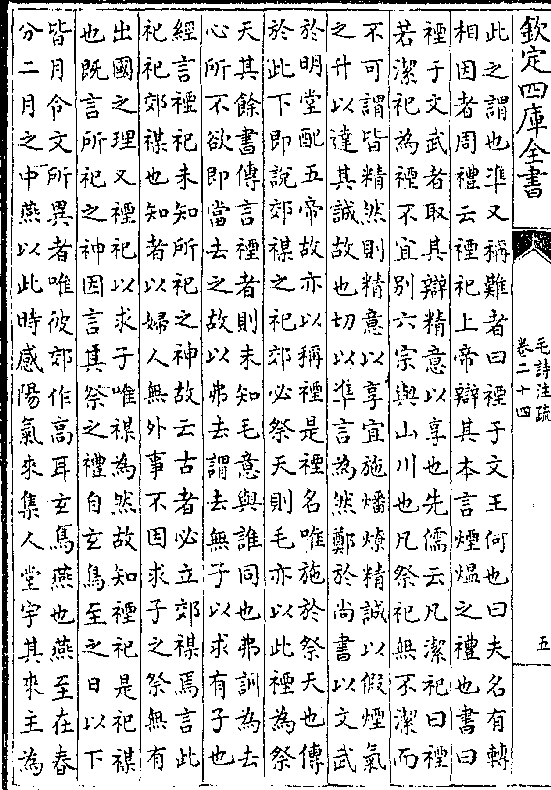 欽定四庫全書
毛詩注疏
卷二十四
五
此之謂也準又稱難者曰禋于文王何也曰夫名有轉
相因者周禮云禋祀上帝辯其本言煙熅之禮也書曰
禋于文武者取其辯精意以享也先儒云凡潔祀曰禋
若潔祀為禋不宜别六宗與山川也凡祭祀無不潔而
不可謂皆精然則精意以享宜施燔燎精誠以假煙氣
之升以達其誠故也切以準言為然鄭於尚書以文武
於明堂配五帝故亦以稱禋是禋名唯施於祭天也傳
於此下即説郊禖之祀郊必祭天則毛亦以此禋為祭
天其餘書傳言禋者則未知毛意與誰同也弗訓為去
心所不欲即當去之故以弗去謂去無子以求有子也
經言禋祀未知所祀之神故云古者必立郊禖焉言此
祀祀郊禖也知者以婦人無外事不因求子之祭無有
出國之理又禋祀以求子唯禖為然故知禋祀是祀禖
也既言所祀之神因言其祭之禮自玄鳥至之日以下
皆月令文所異者唯彼郊作高耳玄鳥燕也燕至在春
分二月之中燕以此時感陽氣來集人堂宇其來主為